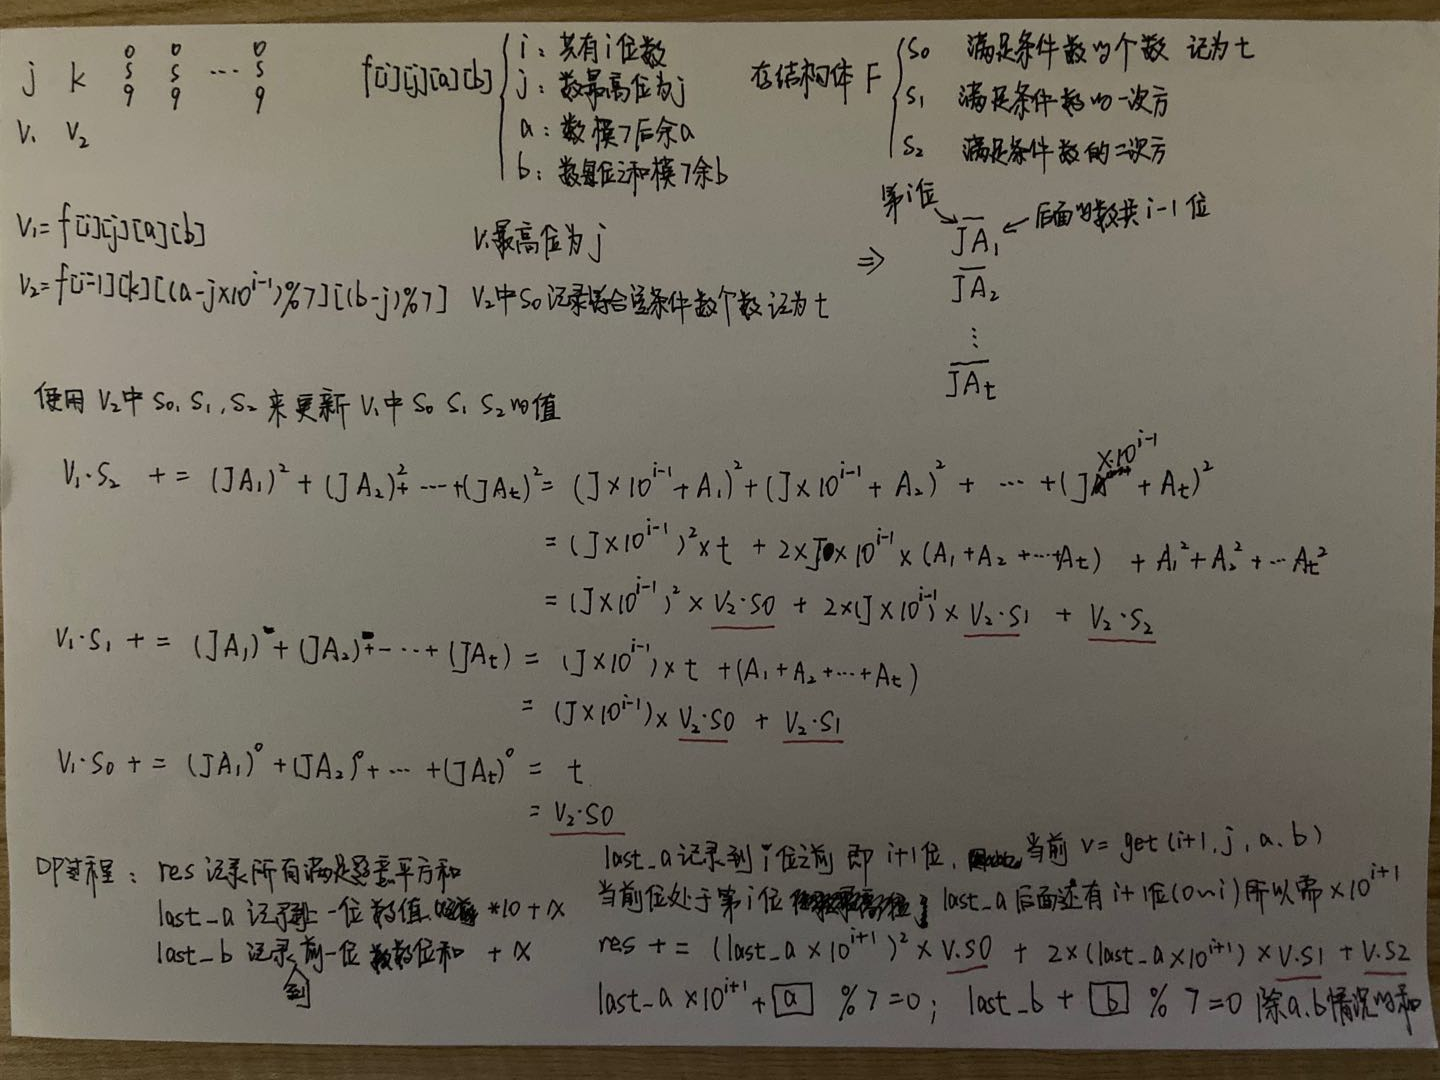 j k 0~9 0~9 ⋯ 0~9
V₁ V₂
f[i][j][a][b]
i: 共有i位数
j: 数最高位为j
a: 数模7后余a
b: 数每位之和模7余b
在结构体F
S0 满足条件数的个数 记为t
S1 满足条件数的一次方
S2 满足条件数的二次方
V₁=f[i][j][a][b] V₁最高位为j
V₂=f[i-1][k][(a-j×10^{i-1})%7][(b-j)%7] V₂中S0记录符合该条件数个数 记为t
⇒
第i位 后面的数共i-1位
JA₁
JA₂
⋮
JAt
使用V₂中S0,S1,S2来更新V₁中S0 S1 S2的值
V₁·S₂ += (JA₁)²+(JA₂)²+⋯+(JAt)² = (J×10^{i-1}+A₁)²+(J×10^{i-1}+A₂)²+ ⋯ +(J×10^{i-1}+At)²
= (J×10^{i-1})²×t + 2×J×10^{i-1}×(A₁+A₂+⋯+At) + A₁²+A₂²+⋯At²
= (J×10^{i-1})²×V₂·S0 + 2×(J×10^{i-1})×V₂·S1 + V₂·S₂
V₁·S₁ += (JA₁)+(JA₂)+⋯+(JAt) = (J×10^{i-1})×t+(A₁+A₂+⋯+At)
= (J×10^{i-1})×V₂·S0 + V₂·S1
V₁·S₀ += (JA₁)⁰+(JA₂)⁰+⋯+(JAt)⁰ = t
= V₂·S0
DP过程: res 记录所有满足题意平方和
last_a 记录到上一位数值 *10+x
last_b 记录到前一位数数位和 +x
last_a记录到i位之前 即i+1位, 当前v=get(i+1,j,a,b)
当前位处于第i位 last_a后面还有i+1位(0~i)所以需×10^{i+1}
res += (last_a×10^{i+1})²×V.S0 + 2×(last_a×10^{i+1})×V.S1+V.S2
last_a×10^{i+1}+a %7=0; last_b+b %7=0 除a,b情况的和